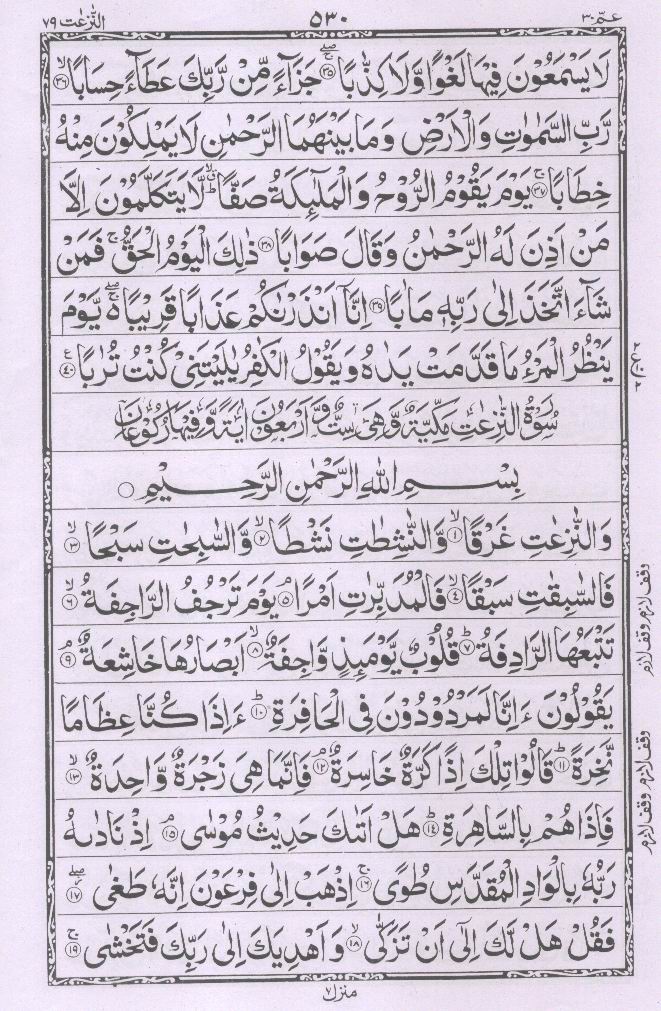 عـمّ ٣٠ ٥٣٠ النّٰزعٰت ٧٩
لَا يَسْمَعُوْنَ فِيْهَا لَغْوًا وَّلَا كِذّٰبًا ۚ‏ۖ ﴿۳۵﴾ جَزَآءً مِّنْ رَّبِّكَ عَطَآءً حِسَابًا ۙ﴿۳۶﴾
رَّبِّ السَّمٰوٰتِ وَالْاَرْضِ وَمَا بَيْنَهُمَا الرَّحْمٰنِ لَا يَمْلِكُوْنَ مِنْهُ
خِطَابًا ۚ﴿۳۷﴾ يَوْمَ يَقُوْمُ الرُّوْحُ وَالْمَلٰٓئِكَةُ صَفًّا ۙۗق لَّا يَتَكَلَّمُوْنَ اِلَّا
مَنْ اَذِنَ لَهُ الرَّحْمٰنُ وَقَالَ صَوَابًا ﴿۳۸﴾ ذٰلِكَ الْيَوْمُ الْحَقُّ ۚ فَمَنْ
شَآءَ اتَّخَذَ اِلٰى رَبِّهٖ مَاٰبًا ﴿۳۹﴾ اِنَّاۤ اَنْذَرْنٰكُمْ عَذَابًا قَرِيْبًا ۬ۚۖ يَّوْمَ
يَنْظُرُ الْمَرْءُ مَا قَدَّمَتْ يَدٰهُ وَيَقُوْلُ الْكٰفِرُ يٰلَيْتَنِيْ كُنْتُ تُرٰبًا ﴿۴۰﴾ ع
٢ ع ٢
سُوْرَةُ النّٰزِعٰتِ مَكِّيَّةٌ وَّهِيَ سِتٌّ وَّاَرْبَعُوْنَ اٰيَةً وَّفِيْهَا رُكُوْعَانِ
بِسْمِ اللّٰهِ الرَّحْمٰنِ الرَّحِيْمِ ○
وَالنّٰزِعٰتِ غَرْقًا ۙ﴿۱﴾ وَّالنّٰشِطٰتِ نَشْطًا ۙ﴿۲﴾ وَّالسّٰبِحٰتِ سَبْحًا ۙ﴿۳﴾
فَالسّٰبِقٰتِ سَبْقًا ۙ﴿۴﴾ فَالْمُدَبِّرٰتِ اَمْرًا ۘ﴿۵﴾ يَوْمَ تَرْجُفُ الرَّاجِفَةُ ۙ﴿۶﴾
وقف لازم وقف لازم
تَتْبَعُهَا الرَّادِفَةُ ؕ﴿۷﴾ قُلُوْبٌ يَّوْمَئِذٍ وَّاجِفَةٌ ۙ﴿۸﴾ اَبْصَارُهَا خَاشِعَةٌ ۘ﴿۹﴾
يَقُوْلُوْنَ ءَاِنَّا لَمَرْدُوْدُوْنَ فِي الْحَافِرَةِ ؕ﴿۱۰﴾ ءَاِذَا كُنَّا عِظَامًا
نَّخِرَةً ؕ﴿۱۱﴾ قَالُوْا تِلْكَ اِذًا كَرَّةٌ خَاسِرَةٌ ۘ﴿۱۲﴾ فَاِنَّمَا هِيَ زَجْرَةٌ وَّاحِدَةٌ ۙ﴿۱۳﴾
وقف لازم وقف لازم
فَاِذَا هُمْ بِالسَّاهِرَةِ ؕ﴿۱۴﴾ هَلْ اَتٰىكَ حَدِيْثُ مُوْسٰى ۘ﴿۱۵﴾ اِذْ نَادٰىهُ
رَبُّهٗ بِالْوَادِ الْمُقَدَّسِ طُوًى ۚ﴿۱۶﴾ اِذْهَبْ اِلٰى فِرْعَوْنَ اِنَّهٗ طَغٰى ۖ﴿۱۷﴾
فَقُلْ هَلْ لَّكَ اِلٰۤى اَنْ تَزَكّٰى ۙ﴿۱۸﴾ وَاَهْدِيَكَ اِلٰى رَبِّكَ فَتَخْشٰى ۚ﴿۱۹﴾
منزل ٧